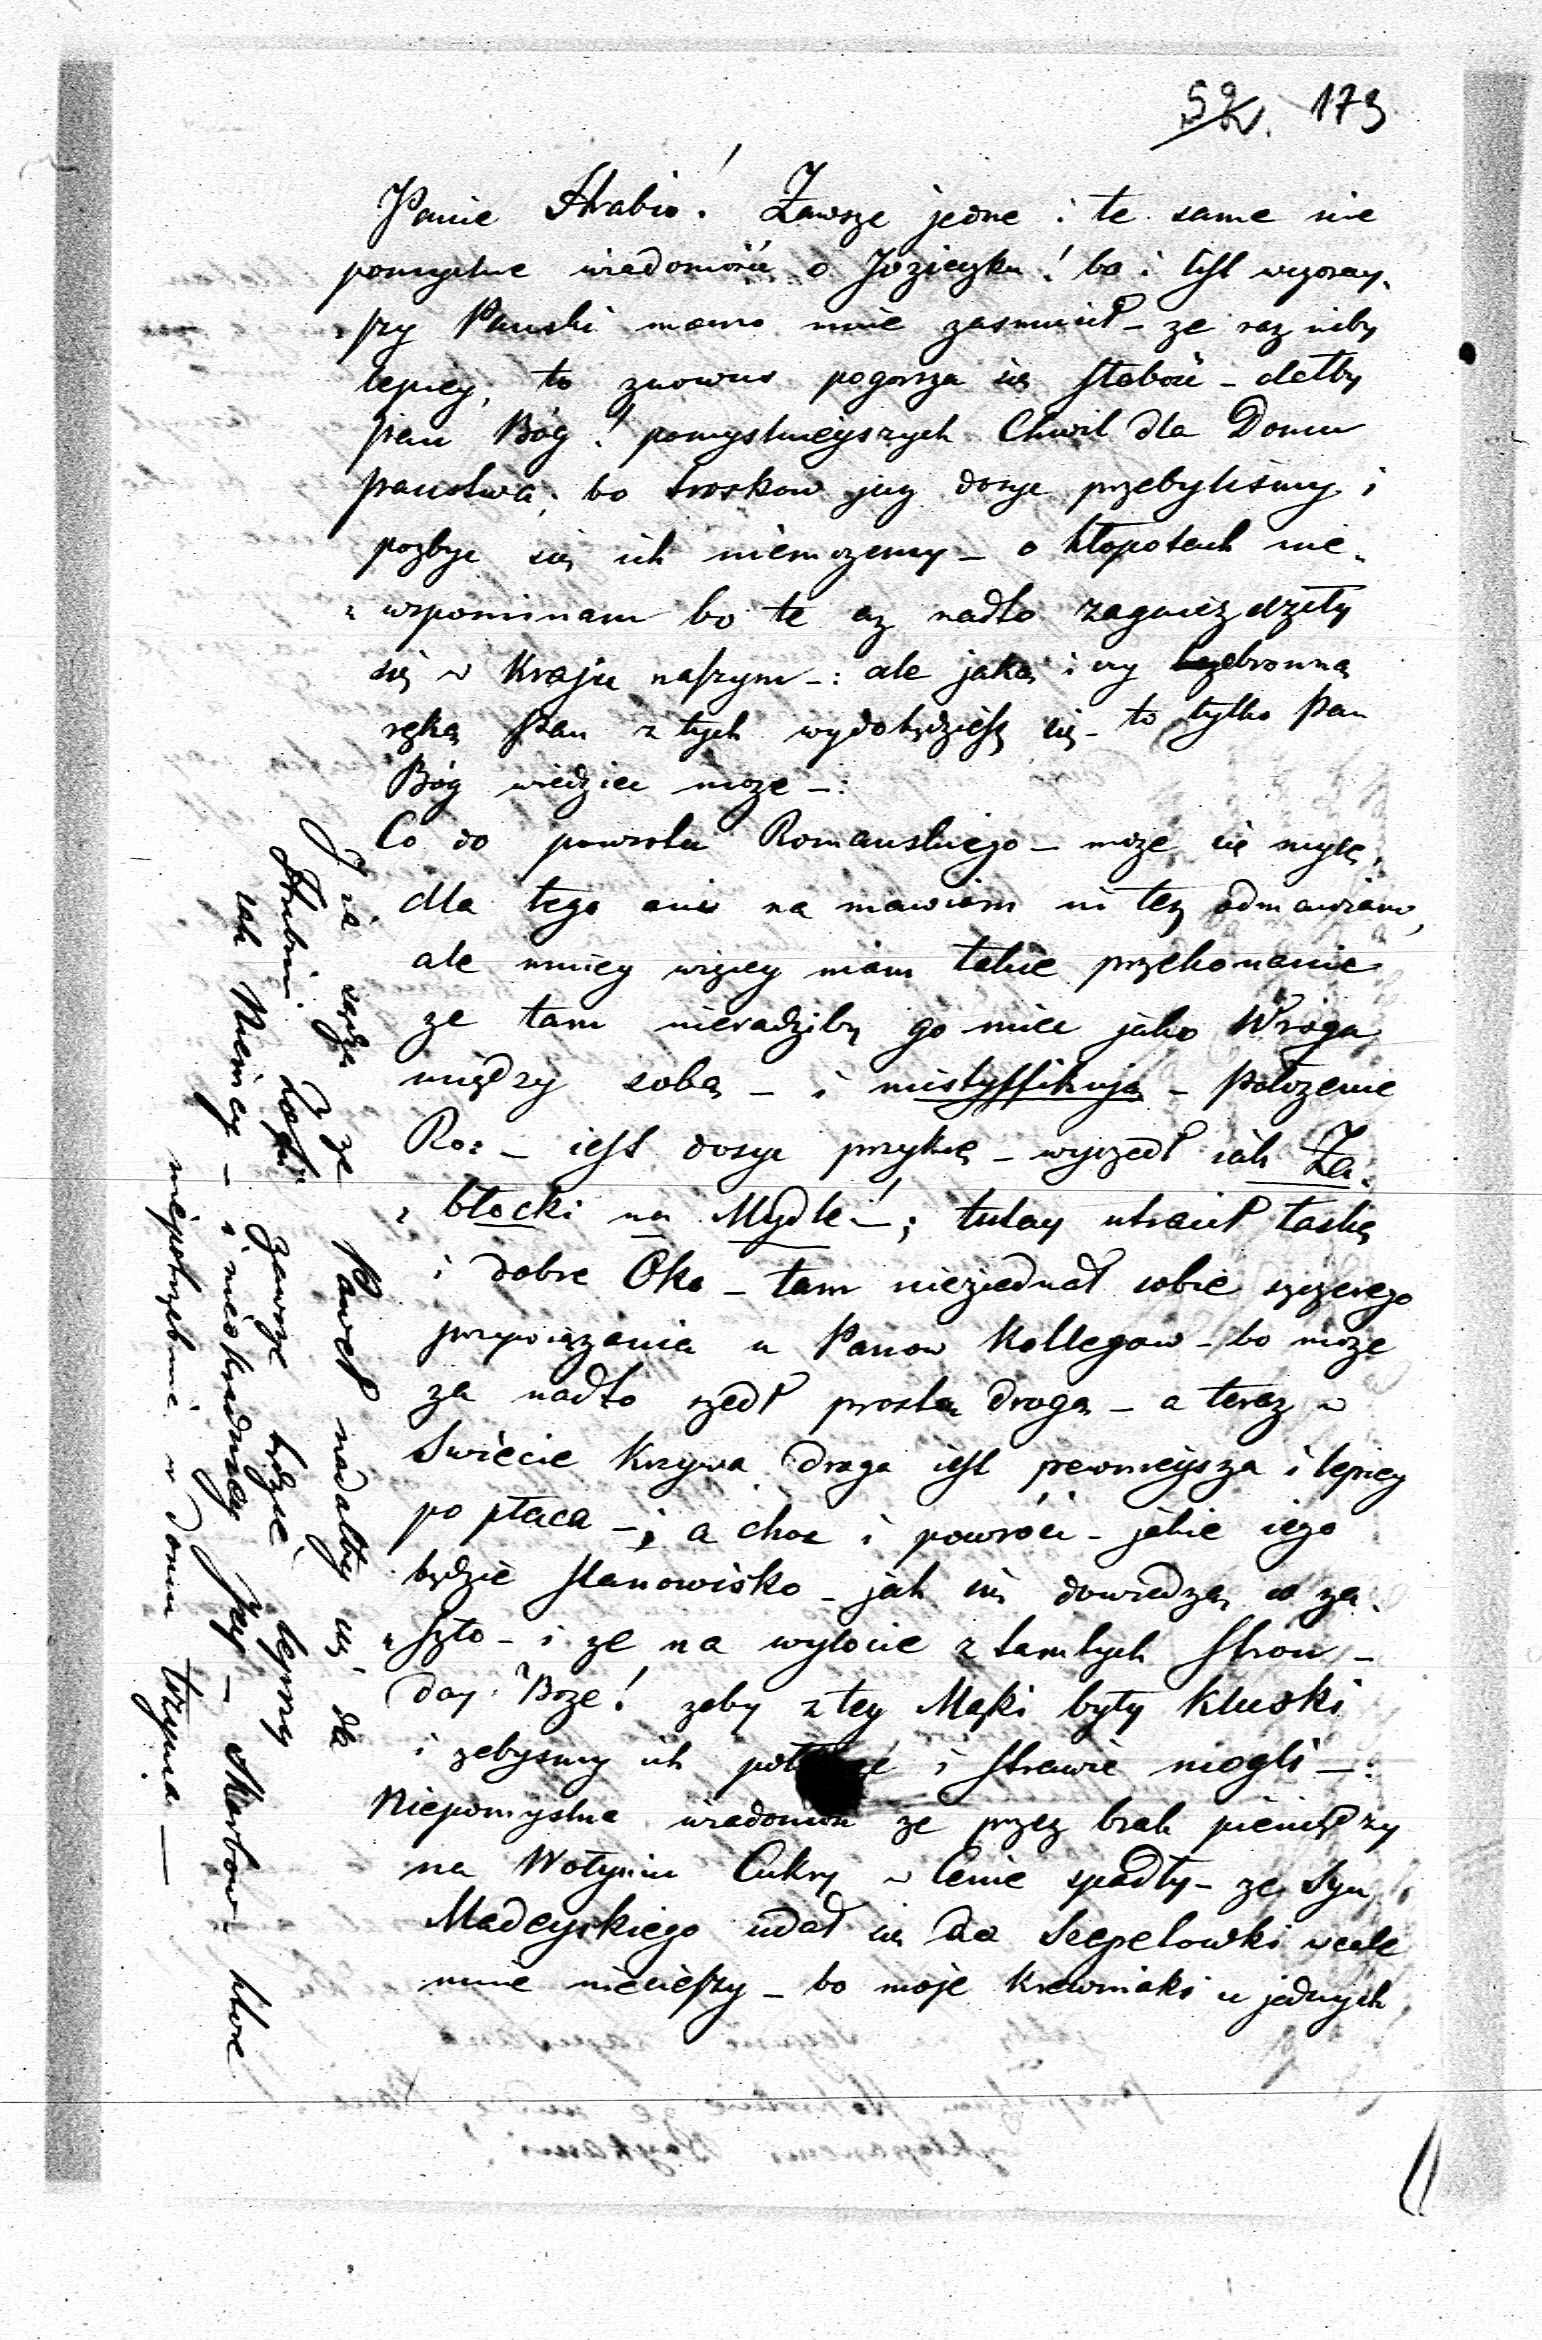 52. 173
Panie Hrabio! Zawsze jedne i te same nie
pomyslne wiadomośći o Józieczku! bo i list wczoray-
szy Panski mocno mnie zasmucił - ze raz niby
lepiey, to znowus pogorsza się słabość - dałby
pan Bóg! pomyslnieyszych Chwil dla Domu
państwa, bo troskow juz dosyc przebyliśmy i
pozbyc się ich niemozemy - o kłopotach nie-
wspominam bo te az nadto zagnieździły
się w Kraju naszym -: ale jaką i czy bronną
ręką stan z tych wydobędziesz się - to tylko Pan
Bóg wiedziec moze -:
Co do powrotu Romanskiego - moze się mylę,
dla tego ani na mawiam ni tez odmawiam,
ale mniey więcey mam takie przekonanie
ze tam nieradziby go miec jako Wroga
między sobą - i mistyffikują - Połozenie
Ro: - iest dosyc przykre - wyszedł iak Za-
błocki na Mydle -; tutay utracił łaskę
i dobre Oko - tam niezjednał sobie szczerego
przywiązania u Panow Kollegow - bo moze
za nadto szedł prostą drogą - a teraz w
Swiecie Krzywa droga iest pewnieysza i lepiey
po płaca -; a choc i powróci - jakie iego
będzie stanowisko - jak się dowiedzą co za-
szło - i ze na wylocie z tamtych stron -
day Boze! zeby z tey Mąki były Kluski
i zebysmy ich i strawic mogli -:
Niepomyslna wiadomość ze przez brak pieniędzy
na Wołyniu Cukry w Cenie spadły - ze Syn
Madeyskiego udał się do Szepetowki wcale
mnie niecieszy - bo moje Krewniaki u jednych
J ia sądze ze Paweł nadałby się do
Hrabin. zawsze będzie lepszy
iak Niemcy - i nieokradnięty - Skarbow. ktore
niepotrzebnie w domu trzyma -